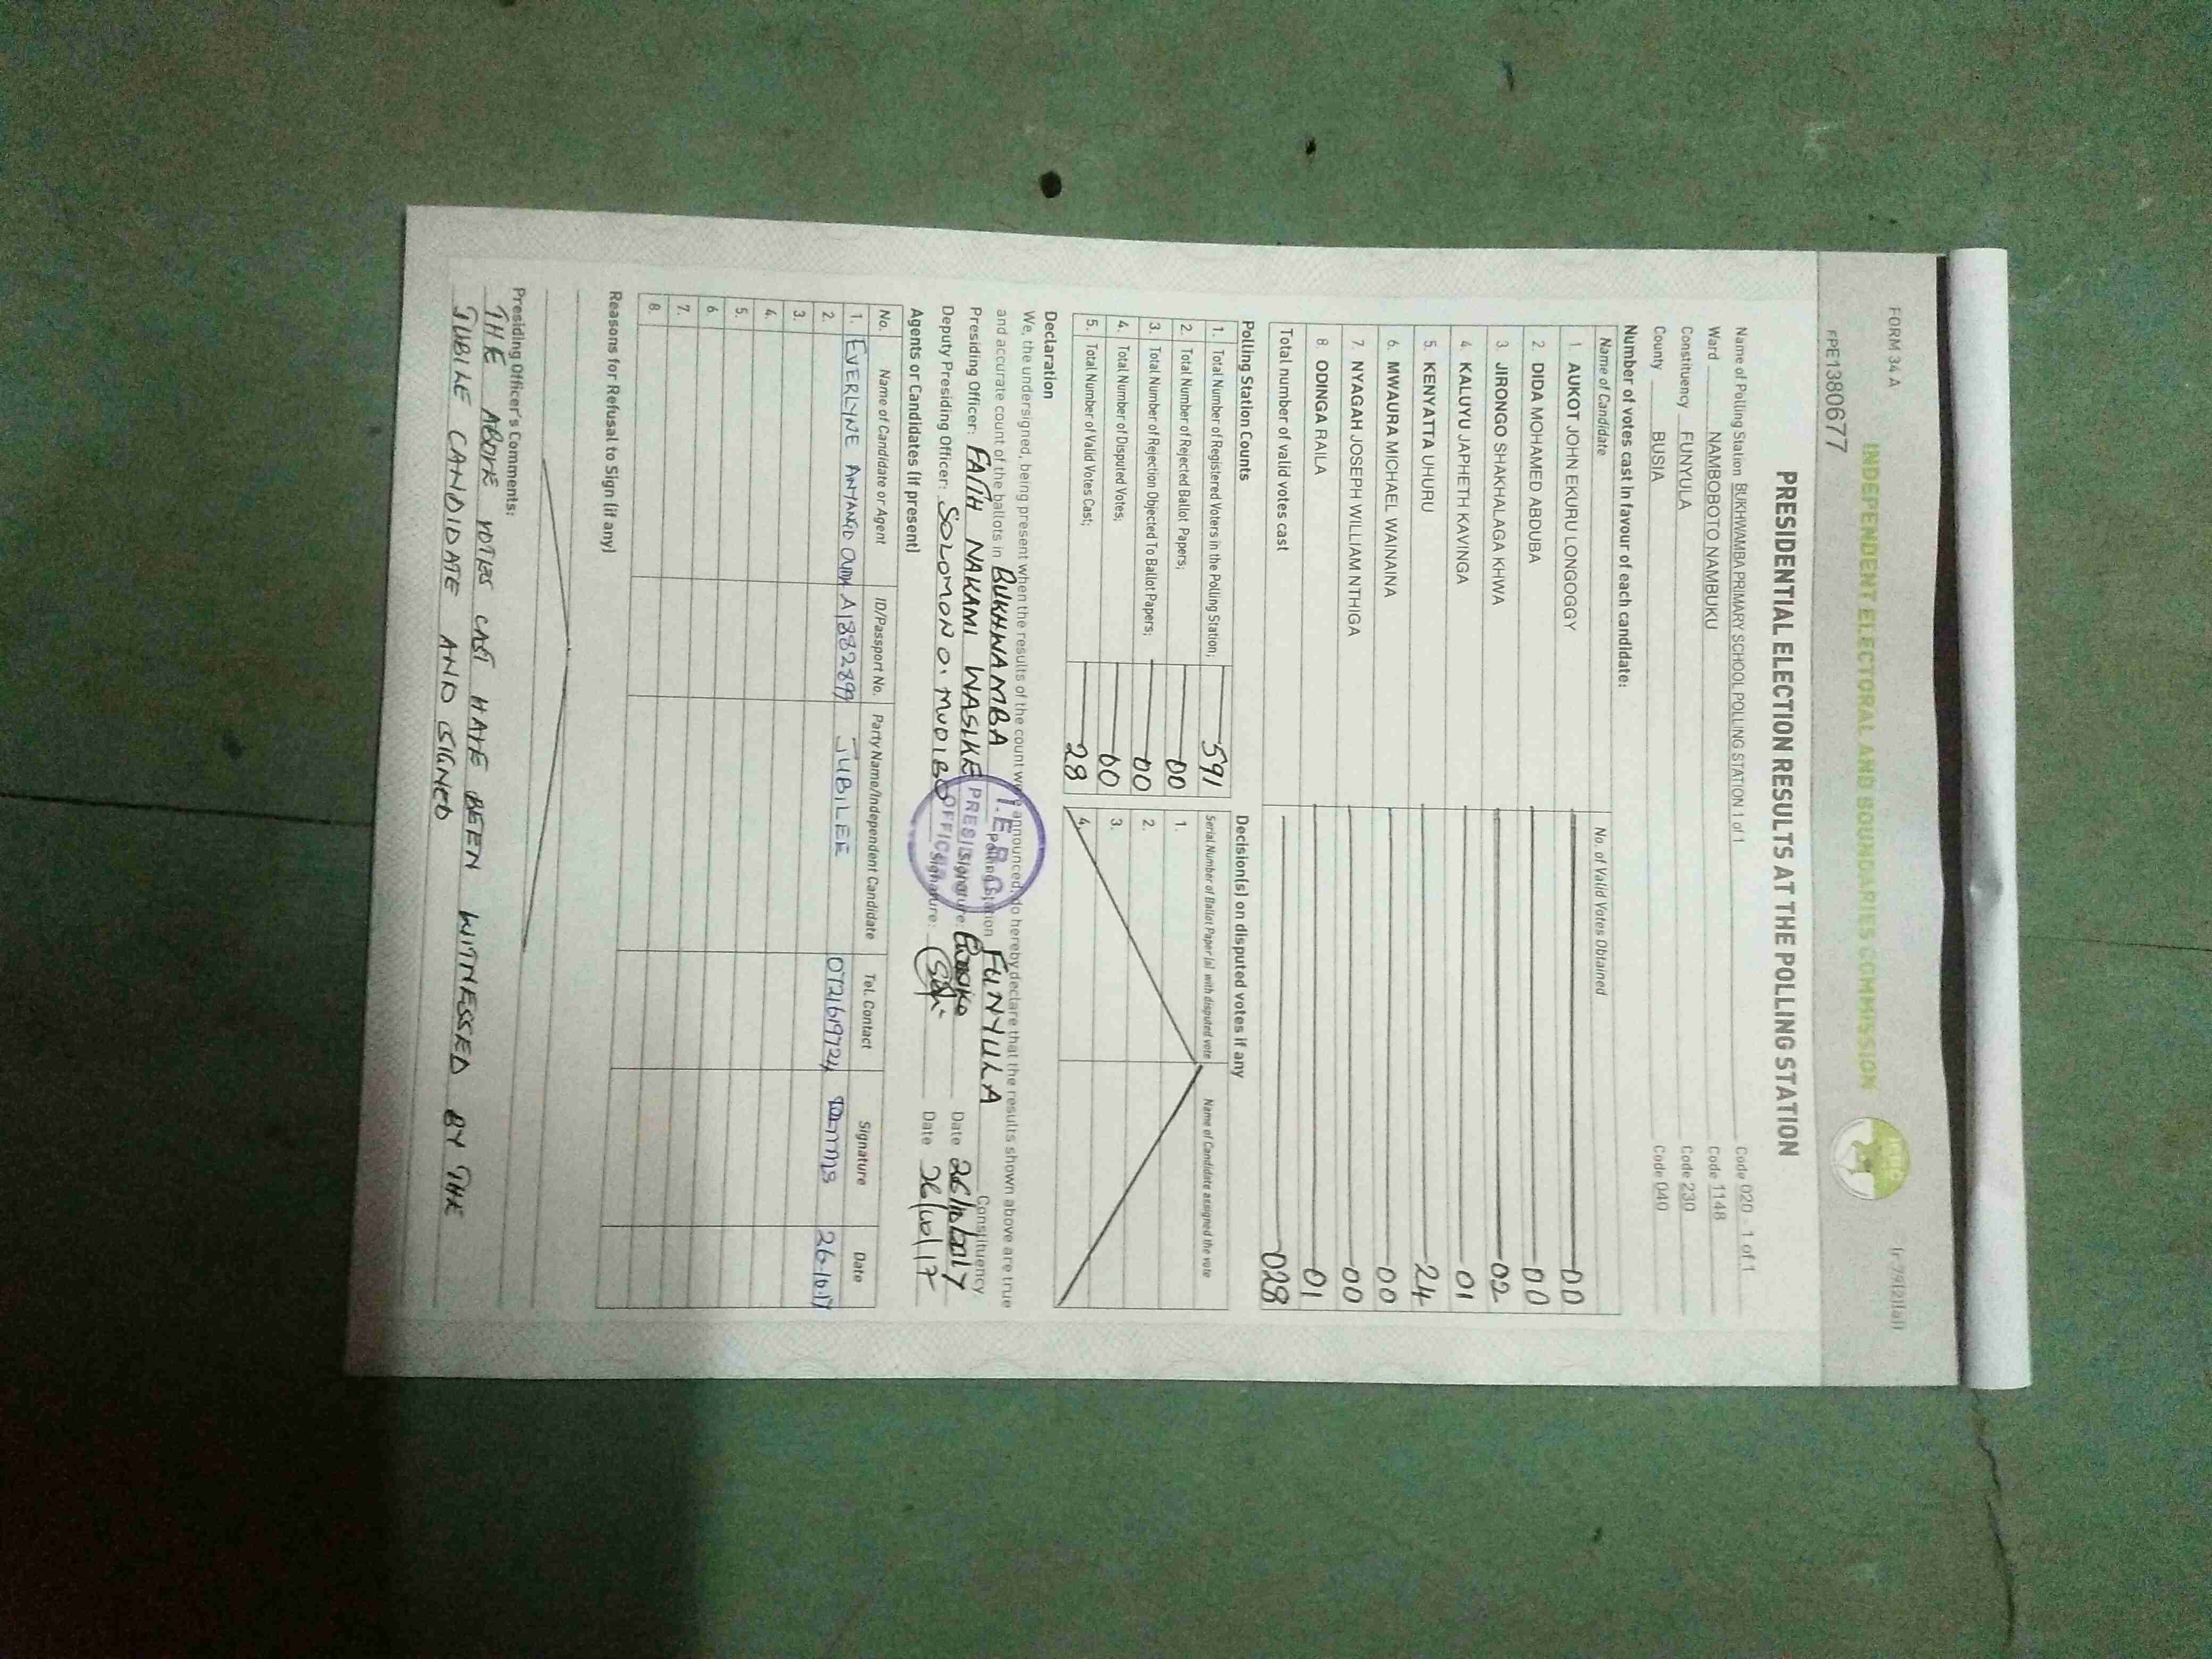 FORM 34 A
(r.79(2)(a))
INDEPENDENT ELECTORAL AND BOUNDARIES COMMISSION
FPE1380677
PRESIDENTIAL ELECTION RESULTS AT THE POLLING STATION
Name of Polling Station BUKHWAMBA PRIMARY SCHOOL POLLING STATION 1 of 1 Code 020 - 1 of 1
Ward NAMBOBOTO NAMBUKU Code 1148
Constituency FUNYULA Code 230
County BUSIA Code 040
Number of votes cast in favour of each candidate:
Name of Candidate No. of Valid Votes Obtained
1 AUKOT JOHN EKURU LONGOGGY 00
2. DIDA MOHAMED ABDUBA 00
3. JIRONGO SHAKHALAGA KHWA 02
4 KALUYU JAPHETH KAVINGA 01
5. KENYATTA UHURU 24
6. MWAURA MICHAEL WAINAINA 00
7. NYAGAH JOSEPH WILLIAM NTHIGA 00
8 ODINGA RAILA 01
Total number of valid votes cast 028
Polling Station Counts Decision(s) on disputed votes if any
1. Total Number of Registered Voters in the Polling Station; 591 Serial Number of Ballot Paper (s) with disputed vote Name of Candidate assigned the vote
2. Total Number of Rejected Ballot Papers; 00 1.
3. Total Number of Rejection Objected To Ballot Papers; 00 2.
4. Total Number of Disputed Votes; 00 3.
5. Total Number of Valid Votes Cast; 28 4.
Declaration
We, the undersigned, being present when the results of the count were announced, do hereby declare that the results shown above are true
and accurate count of the ballots in BUKHWAMBA Polling Station FUNYULA Constituency
Presiding Officer: FAITH NAKAMI WASIKE Signature: Date 26/10/2017
Deputy Presiding Officer: SOLOMON O. MUDIBO Signature: Date 26/10/17
I.E.B.C
PRESIDING
OFFICER
Agents or Candidates (if present)
No. Name of Candidate or Agent ID/Passport No. Party Name/Independent Candidate Tel. Contact Signature Date
1. EVERLYNE OUMA A1882899 JUBILEE 0721619724 26-10-17
2.
3.
4.
5.
6.
7.
8.
Reasons for Refusal to Sign (if any)
Presiding Officer's Comments:
THE ABOVE VOTES CAST HAVE BEEN WITNESSED BY THE
JUBILE CANDIDATE AND SIGNED